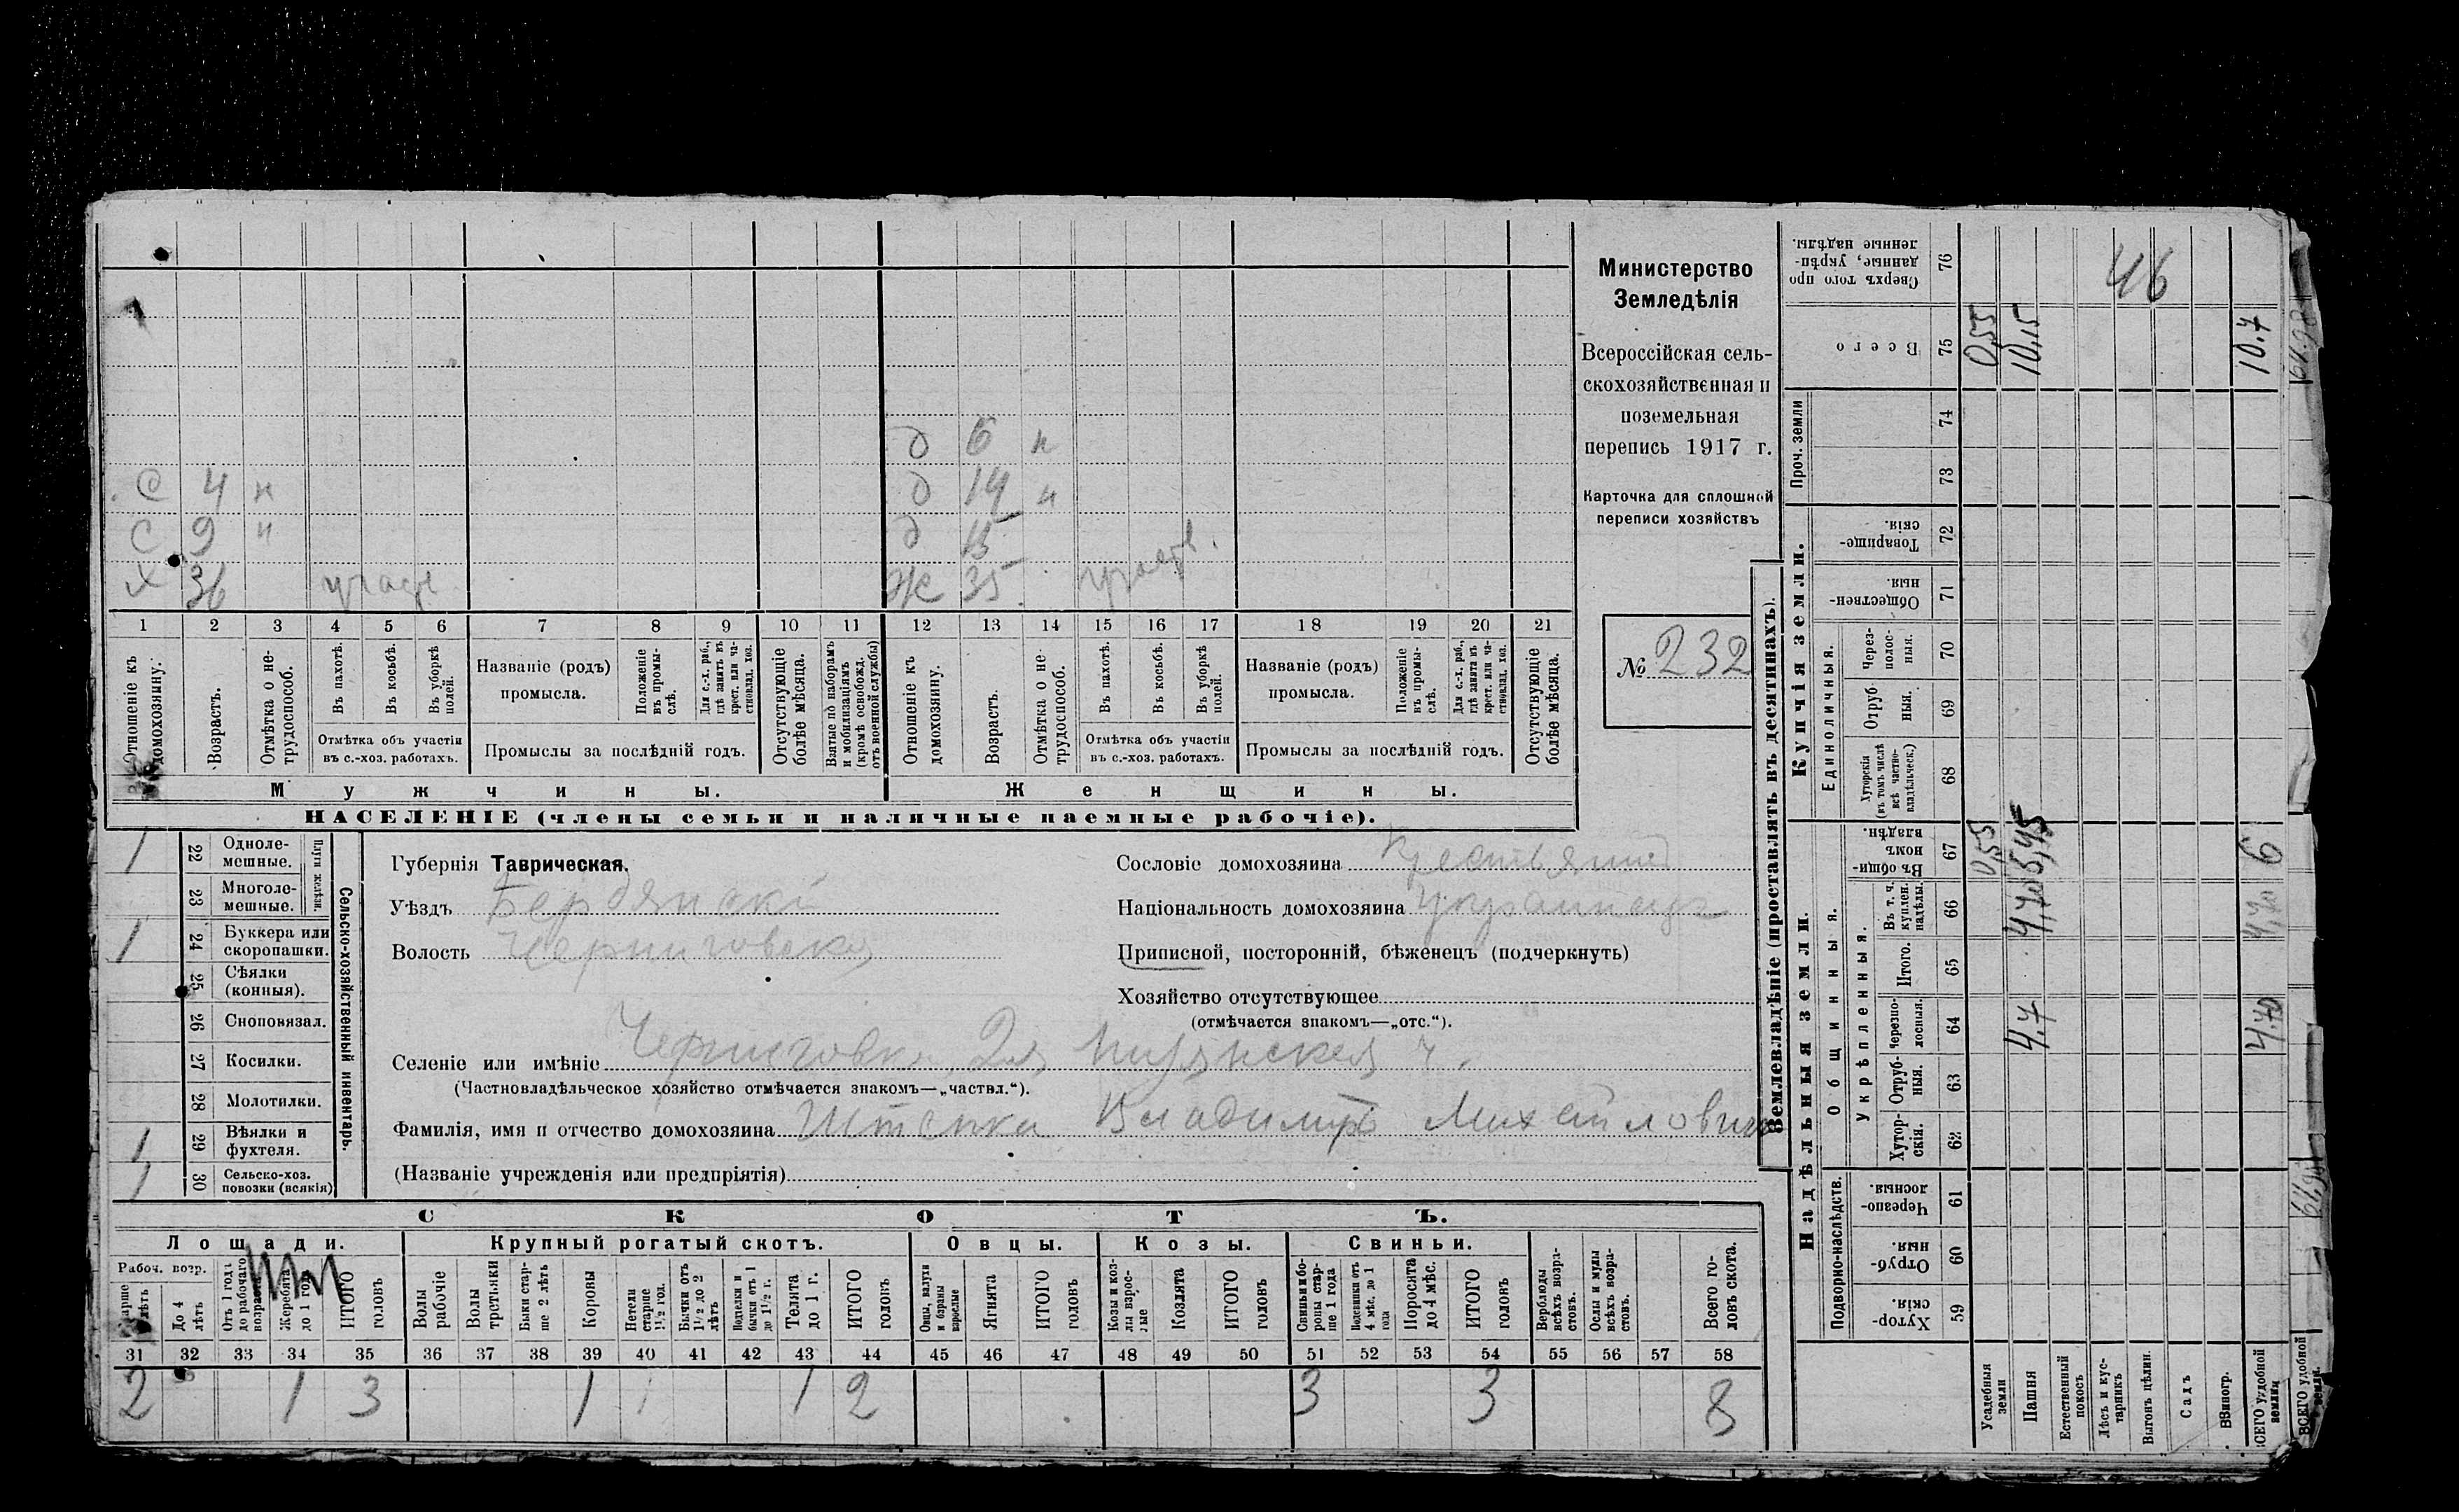 Министерство
Земледѣлія
Всероссійская сель-
скохозяйственная и
поземельная
перепись 1917 г.
Карточка для сплошной
переписи хозяйствъ
№ 232
д 6 н
С 4 н д 14 н
С 9 н д 15
Х 36 участ Ж 35 участв.
1 2 3 4 5 6 7 8 9 10 11 12 13 14 15 16 17 18 19 20 21
Отношеніе къ домохозяину.
Возрастъ.
Отмѣтка о не-трудоспособ.
Въ пахотѣ.
Въ косьбѣ.
Въ уборкѣ полей.
Отмѣтка объ участіи
въ с.-хоз. работахъ.
Названіе (родъ)
промысла.
Положеніе въ промы-слѣ.
Для с.-х. раб., гдѣ занятъ въ крест. или ча-стновлад. хоз.
Промыслы за послѣдній годъ.
Отсутствующіе болѣе мѣсяца.
Взятые по наборамъ и мобилизаціямъ (кромѣ освобожд. отъ военной службы)
Отношеніе къ домохозяину.
Возрастъ.
Отмѣтка о не-трудоспособ.
Въ пахотѣ.
Въ косьбѣ.
Въ уборкѣ полей.
Отмѣтка объ участіи
въ с.-хоз. работахъ.
Названіе (родъ)
промысла.
Положеніе въ промы-слѣ.
Для с.-х. раб., гдѣ занята въ крест. или ча-стновлад. хоз.
Промыслы за послѣдній годъ.
Отсутствующіе болѣе мѣсяца.
Мужчины. Женщины.
НАСЕЛЕНІЕ (члены семьи и наличные наемные рабочіе).
Сельско-хозяйственный инвентарь.
Плуги желѣзн.
1 22 Одноле-мешные.
23 Многоле-мешные.
1 24 Буккера или скоропашки.
25 Сѣялки (конныя).
26 Сноповязал.
27 Косилки.
28 Молотилки.
1 29 Вѣялки и фухтеля.
1 30 Сельско-хоз. повозки (всякія)
Губернія Таврическая.
Уѣздъ Бердянскій
Волость Черниговская
Селеніе или имѣніе Черниговка, 2ая
(Частновладѣльческое хозяйство отмѣчается знакомъ—„частвл.“).
Фамилія, имя и отчество домохозяина Штепка Владимиръ Михайловичъ
(Названіе учрежденія или предпріятія)
Сословіе домохозяина Крестьянинъ
Національность домохозяина Украинецъ
Приписной, посторонній, бѣженецъ (подчеркнуть)
Хозяйство отсутствующее
(отмѣчается знакомъ—„отс.“).
СКОТЪ.
Лошади. Крупный рогатый скотъ. Овцы. Козы. Свиньи.
Рабоч. возр.
Старше 4 лѣтъ
До 4 лѣтъ
Отъ 1 года до рабочаго возраста
Жеребята до 1 года
ИТОГО головъ
Волы рабочіе
Волы третьяки
Быки стар-ше 2 лѣтъ
Коровы
Нетели старше 1½ год.
Бычки отъ 1½ до 2 лѣтъ
Подтелки и бычки отъ 1 до 1½ г.
Телята до 1 г.
ИТОГО головъ
Овцы, валухи и бараны взрослые
Ягнята
ИТОГО головъ
Козы и коз-лы взрос-лые
Козлята
ИТОГО головъ
Свиньи и бо-ровы стар-ше 1 года
Подсвинки отъ 4 мѣс. до 1 года
Поросята до 4 мѣс.
ИТОГО головъ
Верблюды всѣхъ возра-стовъ.
Ослы и мулы всѣхъ возра-стовъ.
Всего го-ловъ скота.
31 32 33 34 35 36 37 38 39 40 41 42 43 44 45 46 47 48 49 50 51 52 53 54 55 56 57 58
2 1 3 1 1 2 3 3 8
Землевладѣніе (проставлять въ десятинахъ).
Надѣльныя земли. Купчія земли.
Подворно-наслѣдств.
Общинныя.
Укрѣпленныя.
Единоличныя.
Проч. земли
Хутор-скія. 59
Отруб-ныя. 60
Черезпо-лосныя. 61
Хутор-скія. 62
Отруб-ныя. 63
Черезпо-лосныя. 64
Итого. 65
Въ т. ч. куплен. надѣлы. 66
Въ общи-номъ владѣн. 67
Хуторскія (въ томъ числѣ всѣ частно-владѣльческ.) 68
Отруб-ныя. 69
Через-полос-ныя. 70
Обществен-ныя. 71
Товарище-скія. 72
73
74
Всего 75
Сверхъ того про-данные, укрѣп-ленные надѣлы. 76
Усадебныя земли 0,55 0,55
Пашня 4.7 5,45 10,15
Естественный покосъ
Лѣсъ и кус-тарникъ
Выгонъ цѣлин.
Садъ
Виногр.
ВСЕГО удобной земли 4.70 6 10.7
46
ВСЕГО удобной земли.